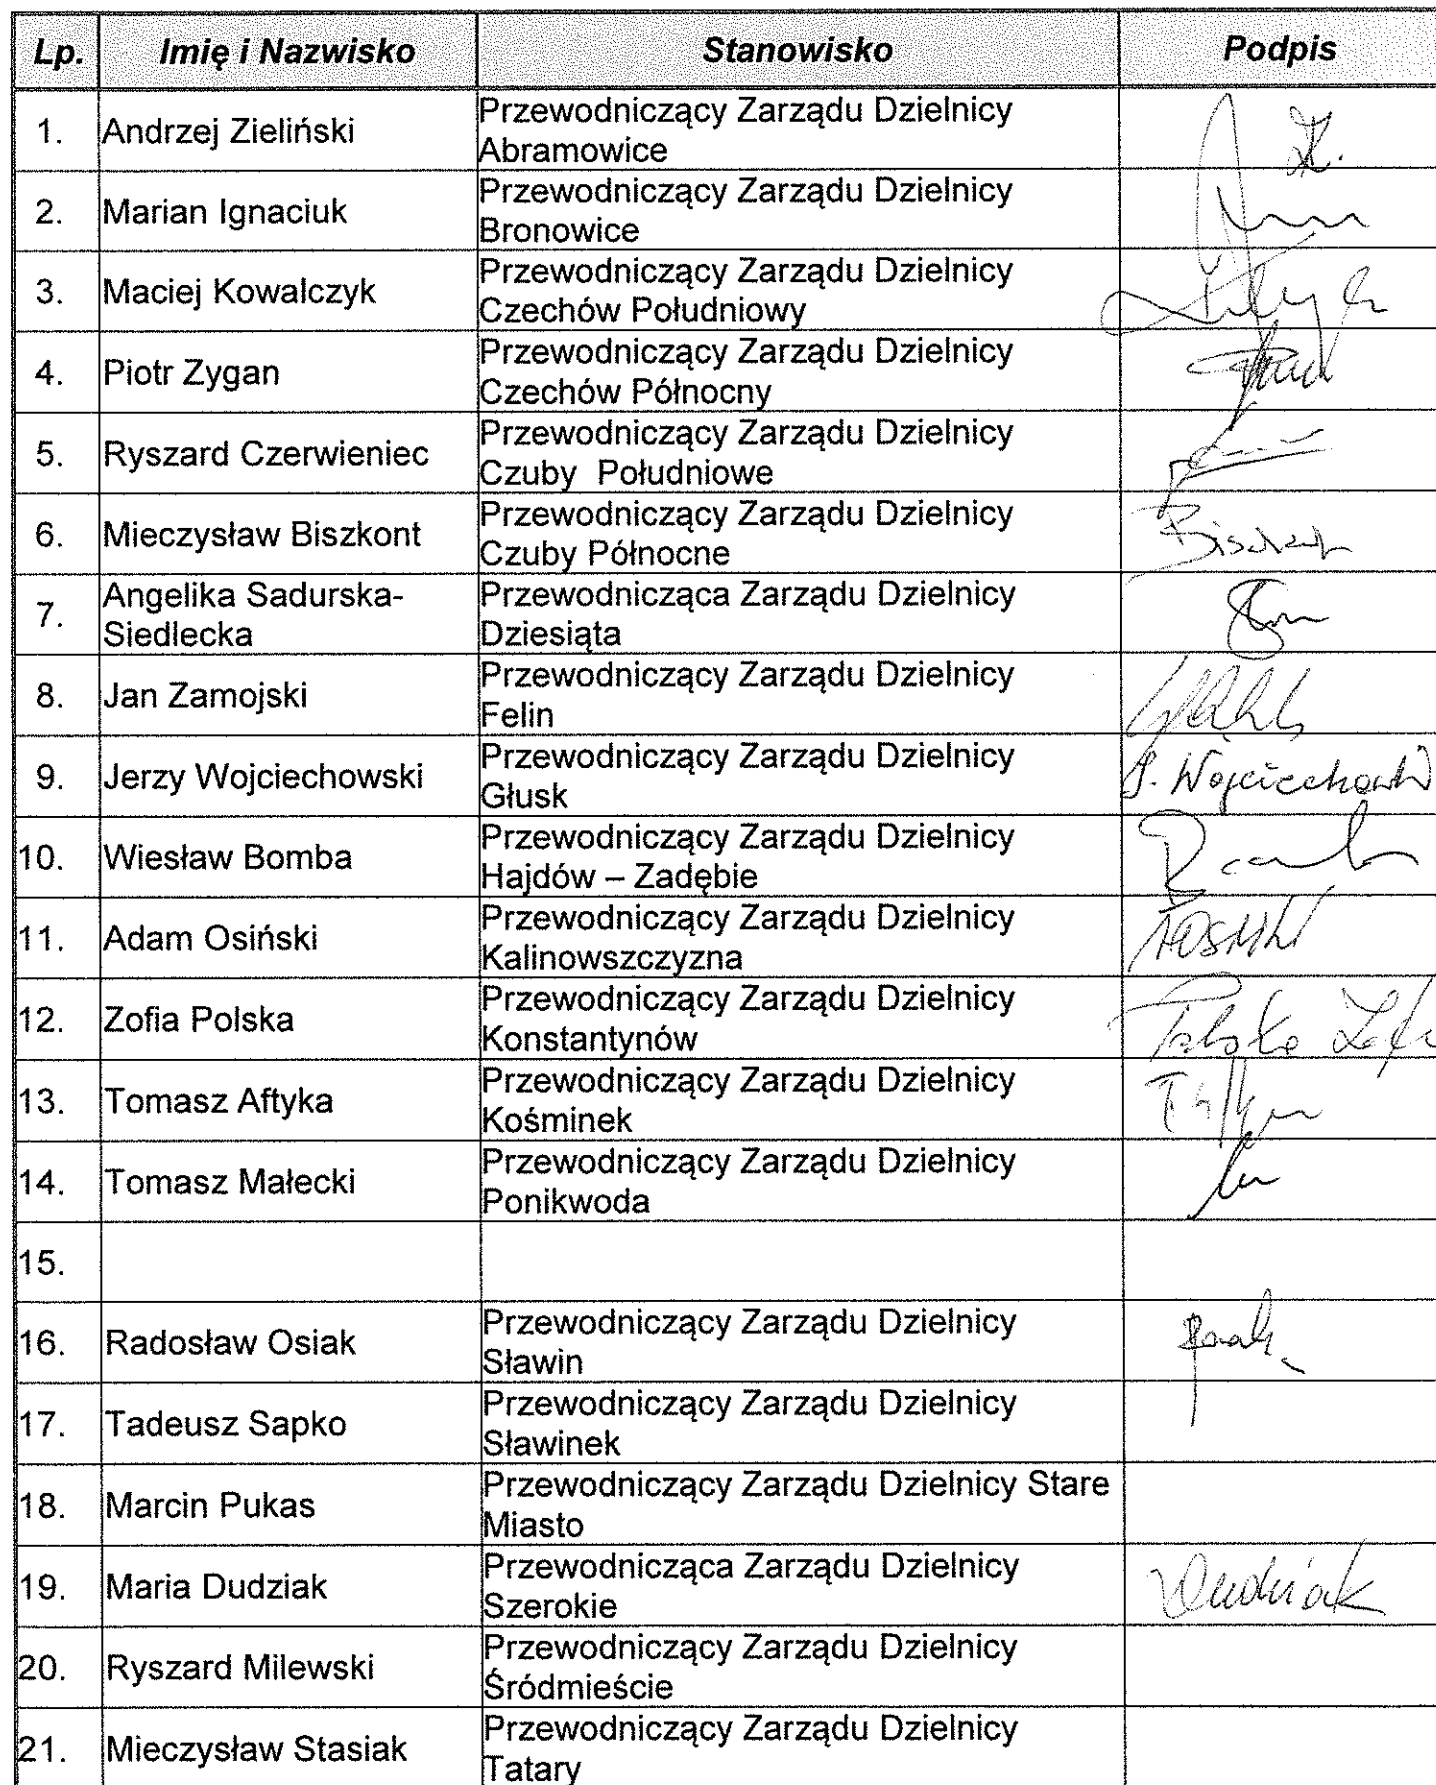 Lp. Imię i Nazwisko Stanowisko Podpis
1. Andrzej Zieliński Przewodniczący Zarządu Dzielnicy
Abramowice
2. Marian Ignaciuk Przewodniczący Zarządu Dzielnicy
Bronowice
3. Maciej Kowalczyk Przewodniczący Zarządu Dzielnicy
Czechów Południowy
4. Piotr Zygan Przewodniczący Zarządu Dzielnicy
Czechów Północny
5. Ryszard Czerwieniec Przewodniczący Zarządu Dzielnicy
Czuby Południowe
6. Mieczysław Biszkont Przewodniczący Zarządu Dzielnicy
Czuby Północne
7. Angelika Sadurska- Przewodnicząca Zarządu Dzielnicy
Siedlecka Dziesiąta
8. Jan Zamojski Przewodniczący Zarządu Dzielnicy
Felin
9. Jerzy Wojciechowski Przewodniczący Zarządu Dzielnicy J. Wojciechowski
Głusk
10. Wiesław Bomba Przewodniczący Zarządu Dzielnicy
Hajdów – Zadębie
11. Adam Osiński Przewodniczący Zarządu Dzielnicy
Kalinowszczyzna
12. Zofia Polska Przewodniczący Zarządu Dzielnicy
Konstantynów
13. Tomasz Aftyka Przewodniczący Zarządu Dzielnicy
Kośminek
14. Tomasz Małecki Przewodniczący Zarządu Dzielnicy
Ponikwoda
15.
16. Radosław Osiak Przewodniczący Zarządu Dzielnicy
Sławin
17. Tadeusz Sapko Przewodniczący Zarządu Dzielnicy
Sławinek
18. Marcin Pukas Przewodniczący Zarządu Dzielnicy Stare
Miasto
19. Maria Dudziak Przewodnicząca Zarządu Dzielnicy Dudziak
Szerokie
20. Ryszard Milewski Przewodniczący Zarządu Dzielnicy
Śródmieście
21. Mieczysław Stasiak Przewodniczący Zarządu Dzielnicy
Tatary